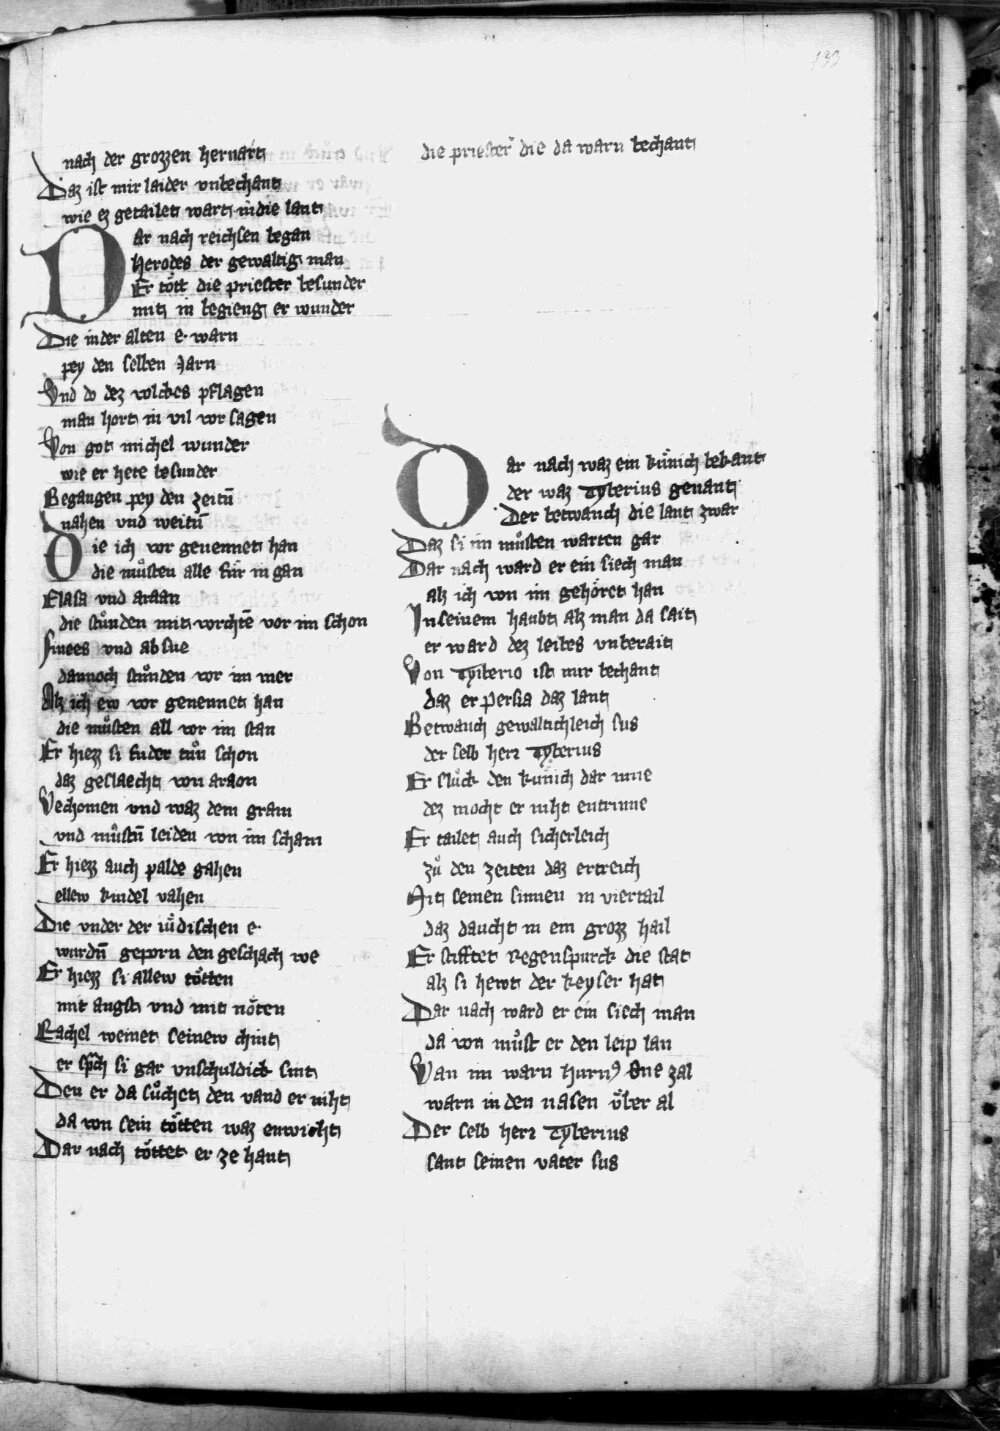 130
nach der grozzen heruart
Daz ist mir laider vnbechant
wie ez getailet wart in die lant
Dar nach reichsen began
Herodes der gewaltig man
Er tött die priester besunder
mit in begieng er wunder
Die in der alten e warn
pey den selben Jarn
Vnd do dez volckes pflagen
man hort in vil vor sagen
Von got michel wunder
wie er hete besunder
Begangen pey den zeitn̄
nahen vnd weitn̄
Die ich vor gennenet han
die mu̓sten alle fúr in gan
Elasa vnd araan
die stu̓nden mit vorchtē vor im schon
finees vnd absue
dannoch stu̓nden vor im mer
Alz ich ew vor genennet han
die mu̓sten all vor im stan
Er hiezz si sunder tu̓n schon
daz geslaecht von araon
Vechomen vnd waz dem gram
vnd mu̓stn̄ leiden von im scham
Er hiezz auch palde gahen
ellew kindel vahen
Die vnder der iúdischen e
wurdn̄ geporn den geschach we
Er hiezz si allew tötten
mit angst vnd mit nöten
Rachel weinet seinew chint
er sp̄ch si gar vnschuldick sint
Den er da su̓chet den vand er niht
da von sein tötten waz enwicht
Dar nach töttet er ze hant
die priester die da warn bechant
Dar nach waz ein kúnich bekant
der waz Tyberius genant
Der betwanch die lant zwar
Daz si im mu̓sten warten gar
Dar nach ward er ein siech man
alz ich von im gehöret han
In seinem haubt alz man da sait
er ward dez leibes vnberait
Von Tyiberio ist mir bechant
daz er persia daz lant
Betwanch gewaltichleich sus
der selb herr Tyberius
Er slu̓ck den kúnich dar inne
dez mocht er niht entrinne
Er tailet auch sicherleich
zu̓ den zeiten daz ertreich
Mit seinen sinnen in viertail
daz daucht in ein grozz hail
Er stifftet Regenspurck die stat
alz si hewt der keyser hat
Dar nach ward er ein siech man
da von mu̓st er den leip lan
Wan im warn hurn⁹ ane zal
warn in den nasen v́ber al
Der selb herr Tyberius
sant seinen vater sus